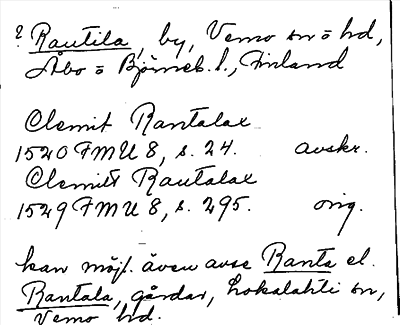 ? Rautila, by, Vemo sn o hd,
Åbo o Björneb. l., Finland
Clemit Rantalax
1520 FMU 8, s. 24. avskr.
Clemitt Rautalax
1529 FMU 8, s. 295. orig.
kan möjl. även avse Ranta el.
Rantala, gårdar, Lokalahti sn,
Vemo hd.